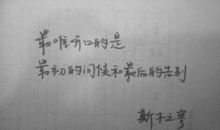 最难开口的是
最初的问候和最后的告别
斯木之寒